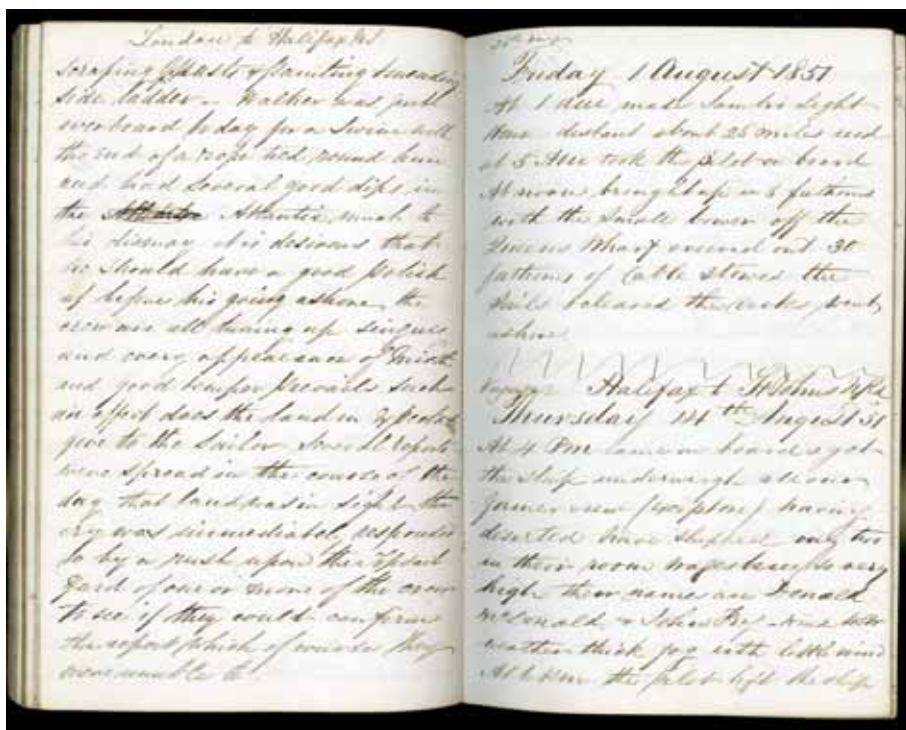 London to Halifax NS
scraping Masts & Painting Mending
side ladder. Walker was put
overboard today for a Swim with
the end of a rope tied round him
and had several good dips in
the Atlantic, much to
his dismay it is desirous that
he should have a good polish
up before his going ashore, the
crew are all tuning up singing
and every appearance of mirth
and good temper prevails such
an effect does the land in
give to the Sailor Several reports
were spread in the course of the
day that land was in sight the
cry was immediately responded
to by a rush upon the Topsail
Yard of one or more of the crew
to see if they could confirm
the report which of course they
were unable to
Friday 1 August 1851
At 1 AM made Sambro Light
House distant about 25 miles and
at 5 AM took the pilot on board
At noon brought up in 6 fathoms
with the Small bower off the
Queens Wharf veered out 30
fathoms of Cable stowed the
Sails the decks went
ashore
Voyage Halifax to St Johns Nfld
Thursday 14th August 51
At 4 PM came on board & got
the ship underweigh all our
former crew (except one) having
deserted have shipped only two
in their room Wages being so very
high their names are Donald
McDonald & John
weather thick fog with little wind
the pilot left the ship